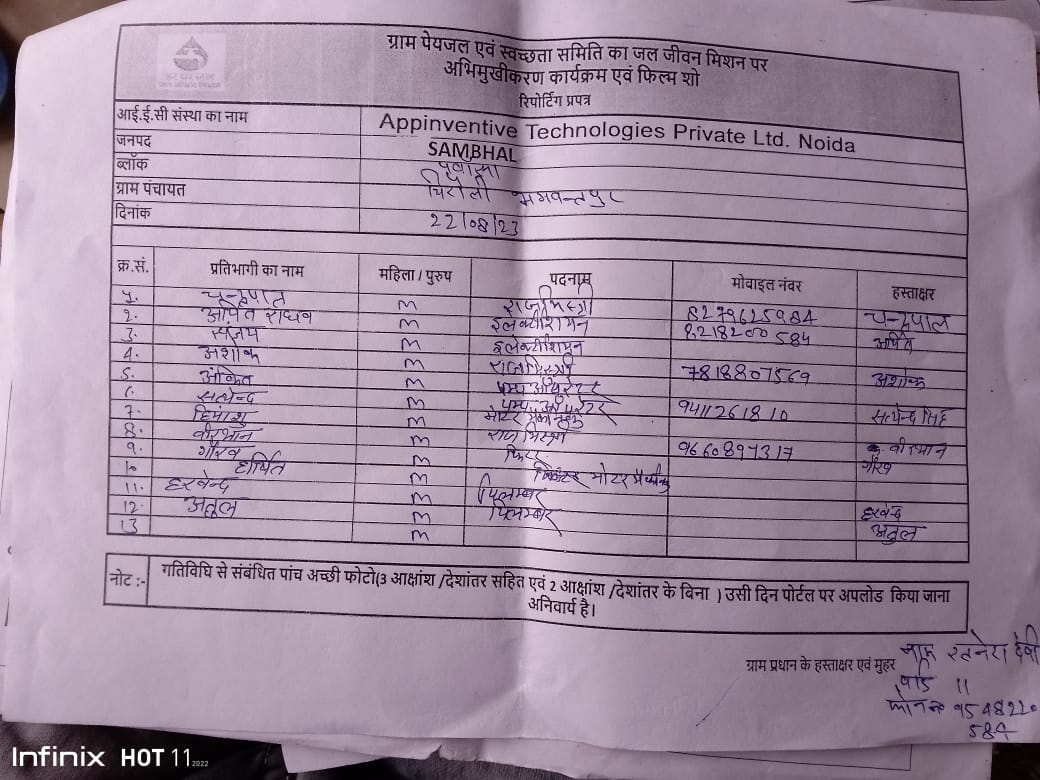 ग्राम पेयजल एवं स्वच्छता समिति का जल जीवन मिशन पर
अभिमुखीकरण कार्यक्रम एवं फिल्म शो
रिपोर्टिंग प्रपत्र
हर घर जल
आई.ई.सी संस्था का नाम Appinventive Technologies Private Ltd. Noida
जनपद SAMBHAL
ब्लॉक पवांसा
ग्राम पंचायत चिरौली भगवन्तपुर
दिनांक 22/08/23
क्र.सं. प्रतिभागी का नाम महिला / पुरुष पदनाम मोबाइल नंबर हस्ताक्षर
1. चन्द्रपाल M राजमिस्त्री 8279625984 चन्द्रपाल
2. अर्पित राघव M इलैक्टीशियन 8218200584 अर्पित
3. संजय M इलैक्टीशियन
4. अशोक M राजमिस्त्री 7818807569 अशोक
5. अंकित M पम्प ऑपरेटर
6. सत्येन्द्र M पम्प ऑपरेटर 9411261810 सत्येन्द्र सिंह
7. हिमांशु M मोटर
8. वीरभान M राज मिस्त्री 9660897317 वीरभान
9. गौरव M फिटर गौरव
10 हर्षित M मोटर
11. हरवेन्द्र M पिलम्बर हरवेन्द्र
12. अतुल M पिलम्बर अतुल
13 M
नोट :- गतिविधि से संबंधित पांच अच्छी फोटो(3 आक्षांश /देशांतर सहित एवं 2 आक्षांश /देशांतर के बिना ) उसी दिन पोर्टल पर अपलोड किया जाना
अनिवार्य है।
ग्राम प्रधान के हस्ताक्षर एवं मुहर
नाम रतनेश देवी
वार्ड 11
फोन न० 9548220
584
Infinix HOT 11 2022